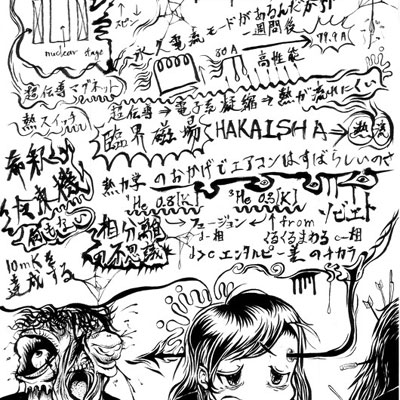 スピン
nuclear stage
永久電流モードがあるんだから!
一週間後
30A
高性能
超伝導マグネット
超伝導→電子系凝縮→熱が流れにくい
熱スイッチ
臨界磁場
HAKAISHA→熱流
希釈冷凍機
熱力学のおかげでエアコンはすばらしいのさ
⁴He 0.8[K]
³He 0.3[K]
相分離
不思議
→フュージョン
from ソビエト
d-相
くるくるまわる c-相
d>c エンタルピー差のチカラ
10mKを
達成する